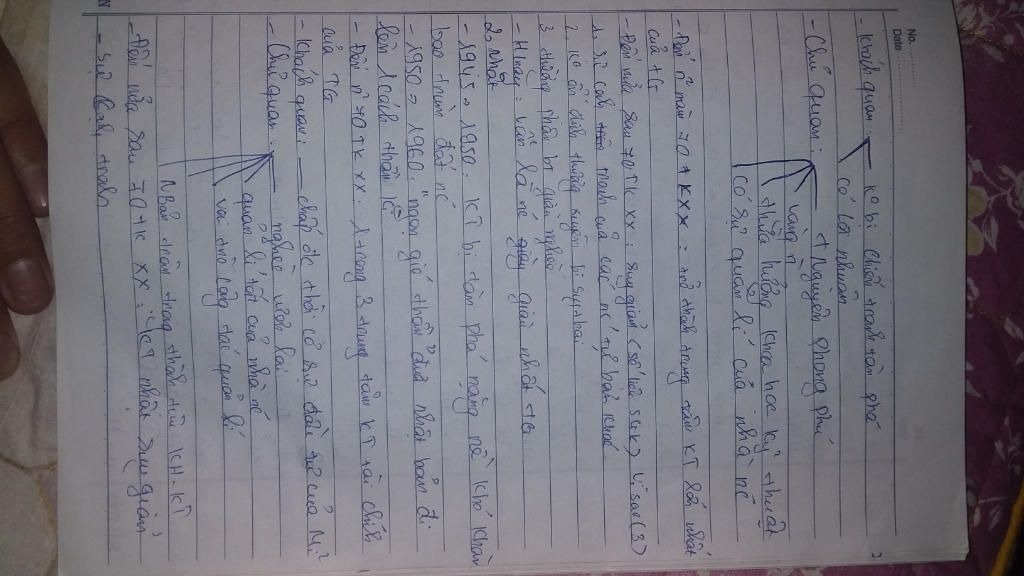 No.
Date
- Khách quan: k° bị chiến tranh tàn phá
có lợi nhuận
- Chủ quan: t nguyên phong phú
vàng n
thừa hưởng khoa học kỹ thuật
có sự quản lí của nhà nc
- Đến n° năm 70 t kxx: trở thành trung tâm KT lớn nhất
của tg
- Đến nửa sau 70 TK XX: suy giảm (số liệu SGK) vì sao (3)
1. sự cạnh tranh của các nc tư bản khác
2. k° ổn định thường xuyên bị suy thoái
3 thường nhân bị giàu nghèo
- Nay: vẫn là nc giàu nhất tg
2 Nhật
- 1945 → 1950: KT bị tàn phá nặng nề khó khăn
bao trùm đất nc
- 1950 → 1960: "ngọn gió thần" đưa nhật bản đi
lên 1 cách thần kì
- Đến n° 70 TK XX: 1 trong 3 trung tâm KT tài chính
của TG
- Khách quan: chớp đc thời cơ sự đầu tư của Mĩ
- Chủ quan: nghèo vươn lại
quản lí tốt của nhà nc
vai trò công tác quản lí
NBản toàn trong thành tựu KH-KT
- Đến nửa sau 70 tk XX: kt nhật suy giảm
- sự cạnh tranh